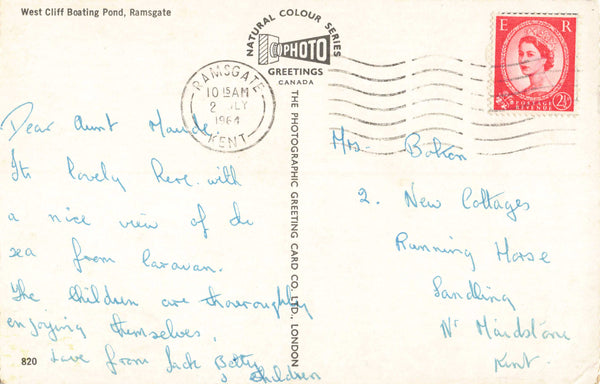 West Cliff Boating Pond, Ramsgate
NATURAL COLOUR SERIES
PHOTO
GREETINGS
CANADA
THE PHOTOGRAPHIC GREETING CARD CO., LTD., LONDON
RAMSGATE
10 15AM
2 LY
1964
KENT
E R
POSTAGE REVENUE
2½
Dear Aunt Maude,
Its lovely here with
a nice view of the
sea from Caravan.
The Children are thouroughly
enjoying themselves.
Love from Jack Betty
& Children
820
Mrs. Bolton
2. New Cottages
Running Horse
Sandling
Nr Maidstone
Kent.